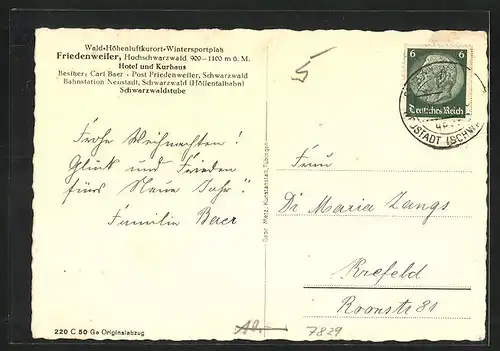 Wald-Höhenluftkurort-Wintersportplatz
Friedenweiler, Hochschwarzwald 900—1100 m ü. M.
Hotel und Kurhaus
Besitzer: Carl Baer - Post Friedenweiler, Schwarzwald
Bahnstation Neustadt, Schwarzwald (Höllentalbahn)
Schwarzwaldstube
Frohe Weihnachten!
Glück und Frieden
fürs Neue Jahr!
Familie Baer
220 C 50 Ge Originalabzug
Gebr. Metz, Kunstanstalt, Tübingen
5
6 6
Deutsches Reich
NEUSTADT (SCHW
Frau
Dr Maria Zangs
Krefeld
Roonstr 81
10.—
7829